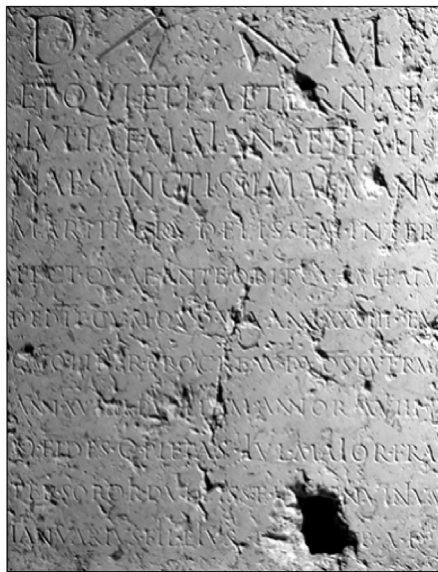 D M
ET QVIETI AETERNAE
IVLIAE MAIANAE FEMI
NAE SANCTISSIMAE MANV
MARITI CRVDELISSIM INTER
FECT QVAE ANTE OBIT QVAM FATVM
DEDIT CVM QVO VIX ANN XXVIII EX
QVO LIBER PROCREAV DVOS PVERVM
ANN XVIIII PVELLAM ANNOR XVIII
O FIDES O PIETAS IVL MAIOR FRA
TER SORORI DVLCISS NVINIVS
IANVARIVS FIL EIVS A D